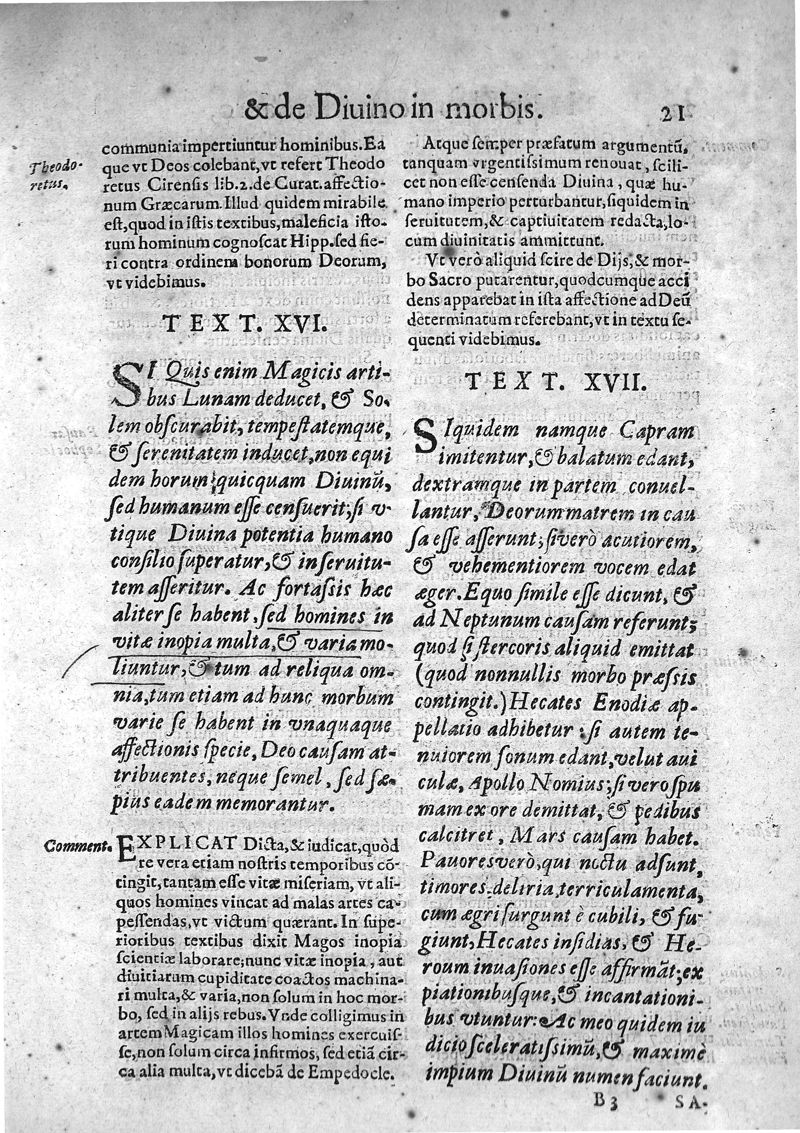 & de Diuino in morbis. 21
communia impertiuntur hominibus. Ea
que vt Deos colebant, vt refert Theodo
retus Cirensis lib. 2. de Curat. affectio-
num Græcarum. Illud quidem mirabile
est, quod in istis textibus, maleficia isto-
rum hominum cognoscat Hipp. sed fie-
ri contra ordinem bonorum Deorum,
vt videbimus.
Theodo-
retus.
TEXT. XVI.
SI Quis enim Magicis arti-
bus Lunam deducet, & So-
lem obscurabit, tempestatemque,
& serenitatem inducet, non equi
dem horum quicquam Diuinũ,
sed humanum esse censuerit; si v-
tique Diuina potentia humano
consilio superatur, & in seruitu-
tem asseritur. Ac fortassis hæc
aliter se habent, sed homines in
vitæ inopia multa, & varia mo-
liuntur, & tum ad reliqua om-
nia, tum etiam ad hunc morbum
varie se habent in vnaquaque
affectionis specie, Deo causam at-
tribuentes, neque semel, sed sæ-
pius eadem memorantur.
Comment.
EXPLICAT Dicta, & iudicat, quòd
re vera etiam nostris temporibus cõ-
tingit, tantam esse vitæ miseriam, vt ali-
quos homines vincat ad malas artes ca-
pessendas, vt victum quærant. In supe-
rioribus textibus dixit Magos inopia
scientiæ laborare; nunc vitæ inopia, aut
diuitiarum cupiditate coactos machina-
ri multa, & varia, non solum in hoc mor-
bo, sed in alijs rebus. Vnde colligimus in
artem Magicam illos homines exercuis-
se, non solum circa infirmos, sed etiã cir-
ca alia multa, vt dicebã de Empedocle.
Atque semper præfatum argumentũ,
tanquam vrgentissimum renouat, scili-
cet non esse censenda Diuina, quæ hu-
mano imperio perturbantur, siquidem in
seruitutem, & captiuitatem redacta, lo-
cum diuinitatis ammittunt.
Vt verò aliquid scire de Dijs, & mor-
bo Sacro putarentur, quodcumque acci
dens apparebat in ista affectione ad Deũ
determinatum referebant, vt in textu se-
quenti videbimus.
TEXT. XVII.
SIquidem namque Capram
imitentur, & balatum edant,
dextramque in partem conuel-
lantur, Deorum matrem in cau
sa esse asserunt; si verò acutiorem,
& vehementiorem vocem edat
æger. Equo simile esse dicunt, &
ad Neptunum causam referunt;
quod si stercoris aliquid emittat
(quod nonnullis morbo præssis
contingit.) Hecates Enodiæ ap-
pellatio adhibetur: si autem te-
nuiorem sonum edant, velut aui
culæ, Apollo Nomius; si vero spu
mam ex ore demittat, & pedibus
calcitret, Mars causam habet.
Pauores verò, qui noctu adsunt,
timores, deliria, terriculamenta,
cum ægri surgunt è cubili, & fu-
giunt, Hecates insidias, & He-
roum inuasiones esse affirmãt; ex
piationibusque, & incantationi-
bus vtuntur: Ac meo quidem iu
dicio sceleratissimũ, & maximè
impium Diuinũ numen faciunt.
B 3 SA-